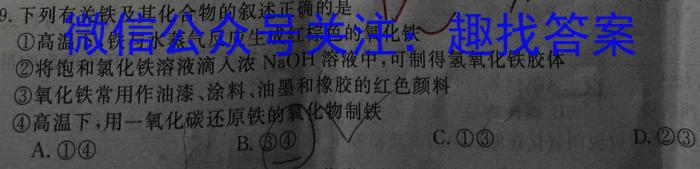 9.下列有关铁及其化合物的叙述正确的是
微信公众号关注：趣找答案
①高温下,铁与水蒸气反应生成红棕色的氧化铁
②将饱和氯化铁溶液滴入浓 NaOH 溶液中,可制得氢氧化铁胶体
③氧化铁常用作油漆、涂料、油墨和橡胶的红色颜料
④高温下,用一氧化碳还原铁的氧化物制铁
A.①④ B.③④ C.①③ D.②③